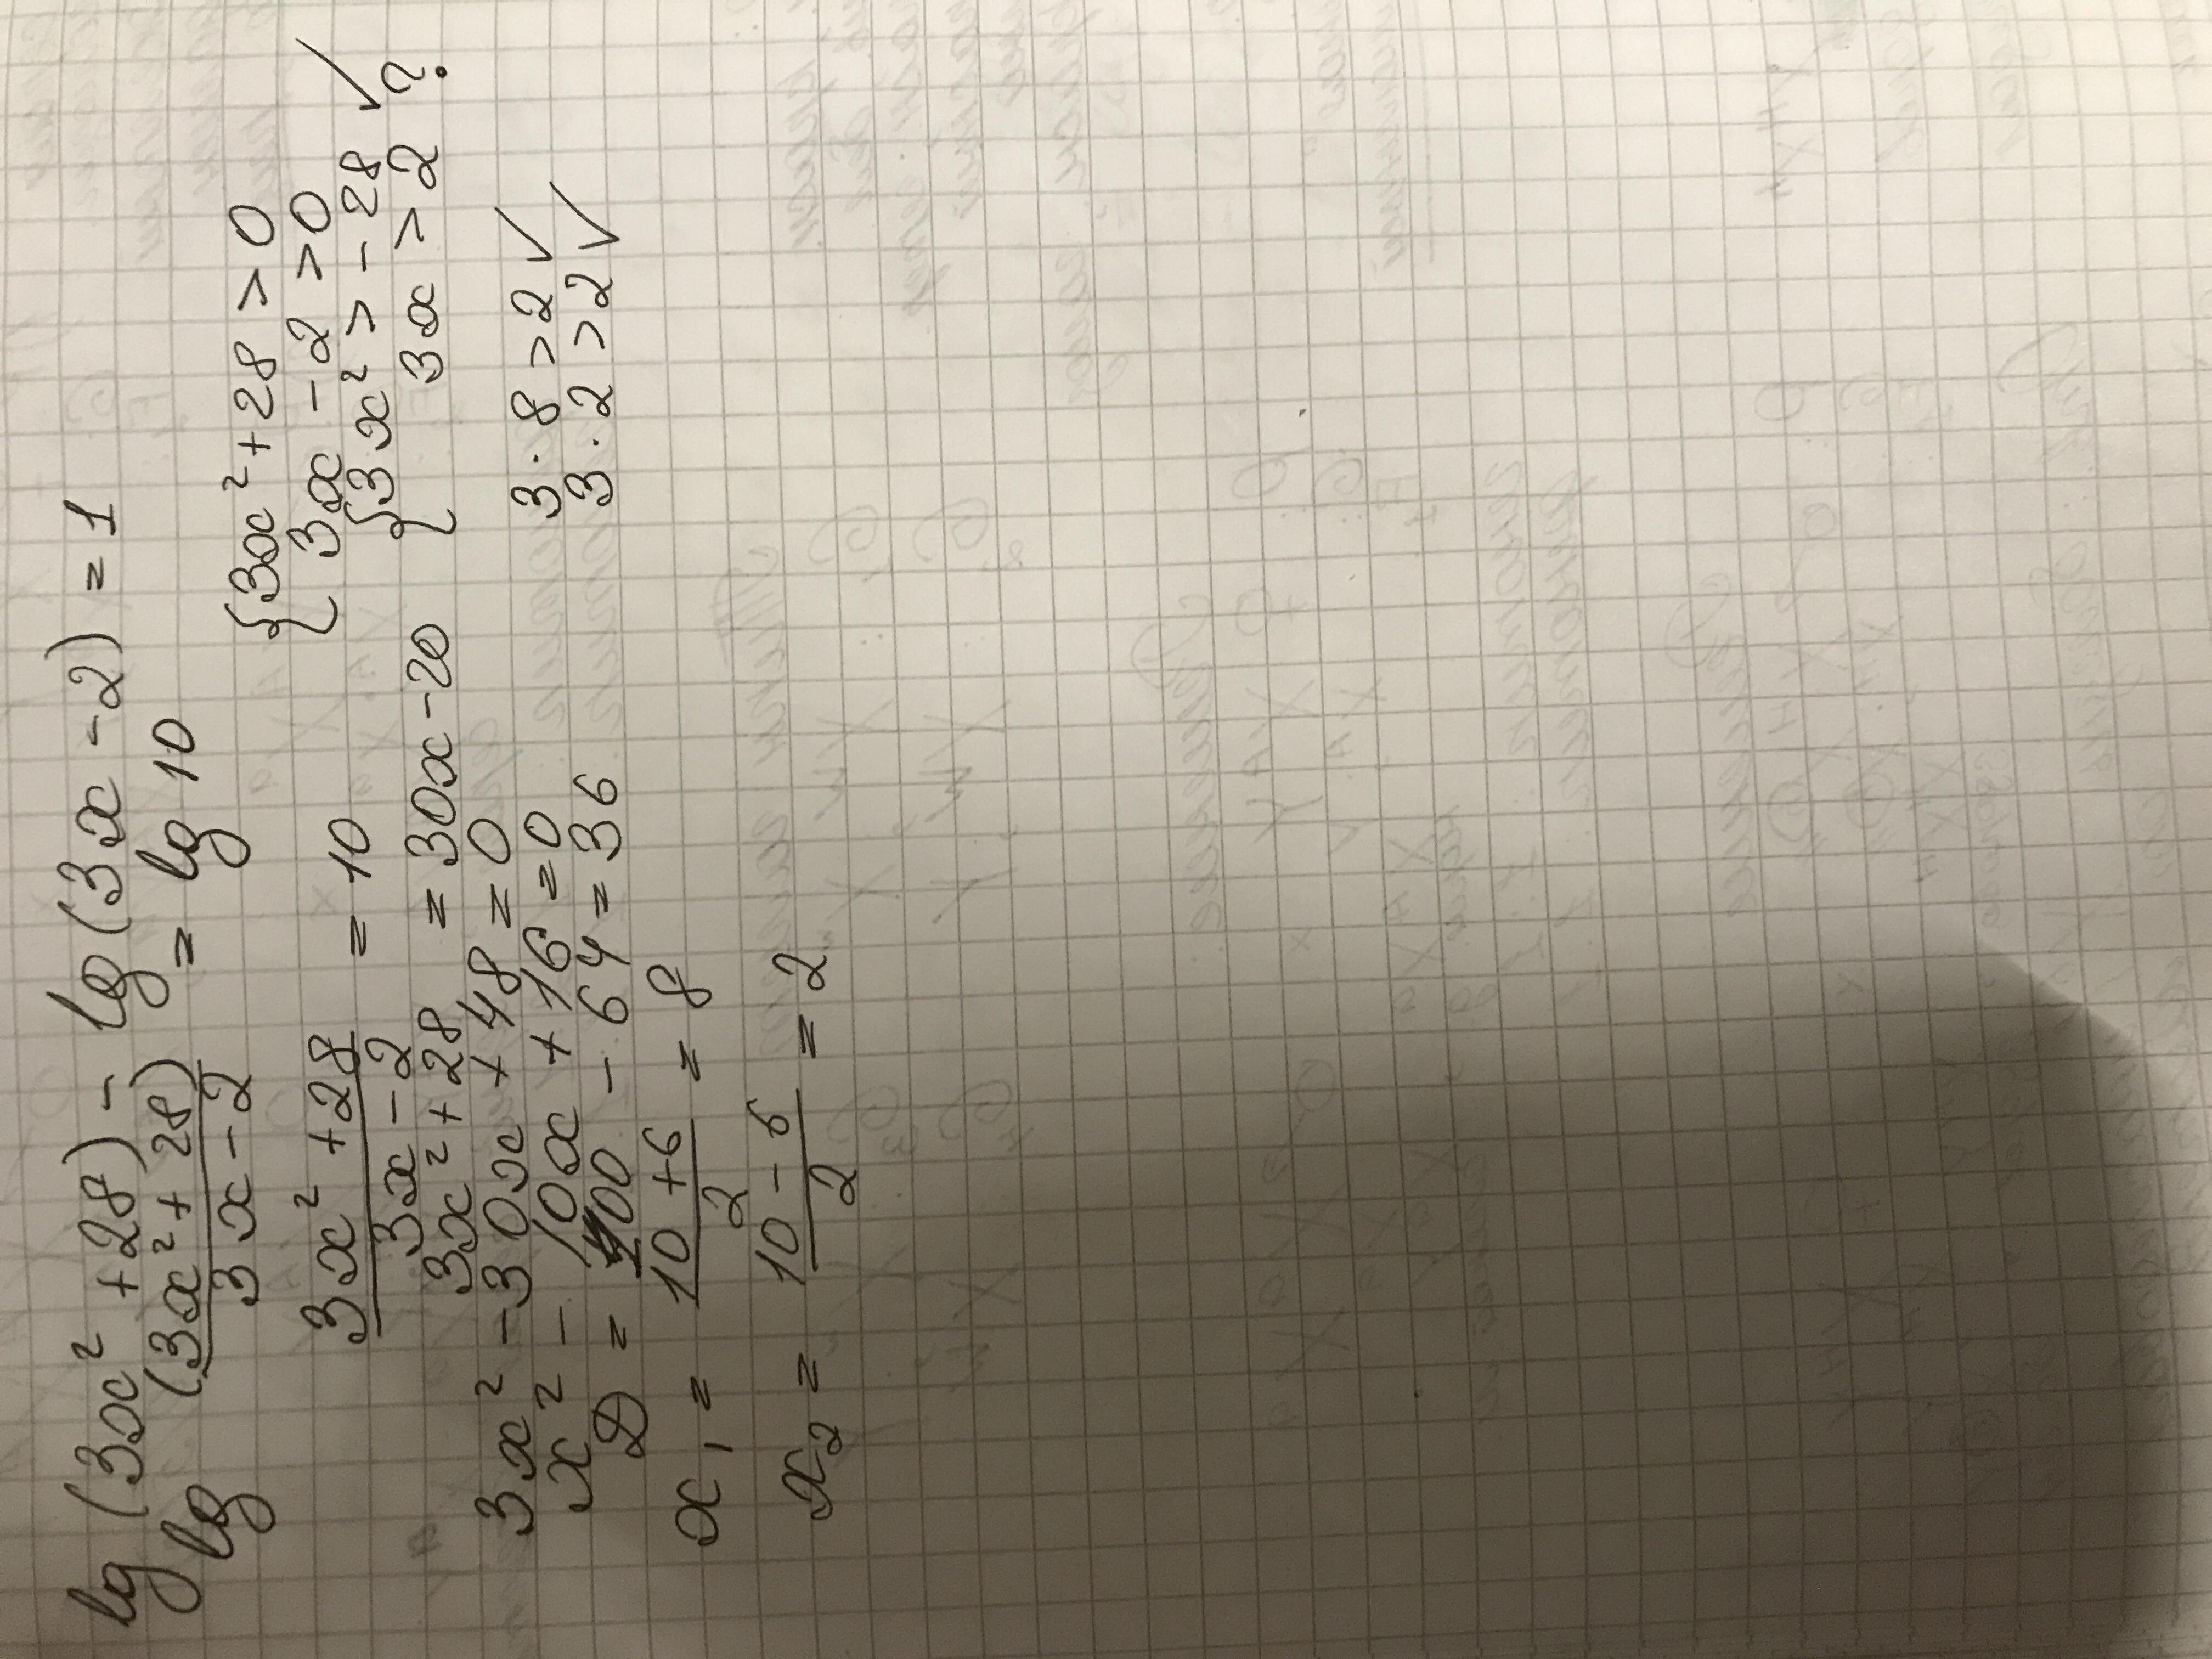 lg (3x² + 28) - lg (3x - 2) = 1
lg (3x² + 28) / 3x - 2 = lg 10
3x² + 28 / 3x - 2 = 10
3x² + 28 = 30x - 20
3x² - 30x + 48 = 0
x² - 10x + 16 = 0
D = 100 - 64 = 36
x₁ = 10 + 6 / 2 = 8
x₂ = 10 - 6 / 2 = 2
{ 3x² + 28 > 0
3x - 2 > 0
{ 3x² > - 28 ✓
3x > 2 ?
3 · 8 > 2 ✓
3 · 2 > 2 ✓